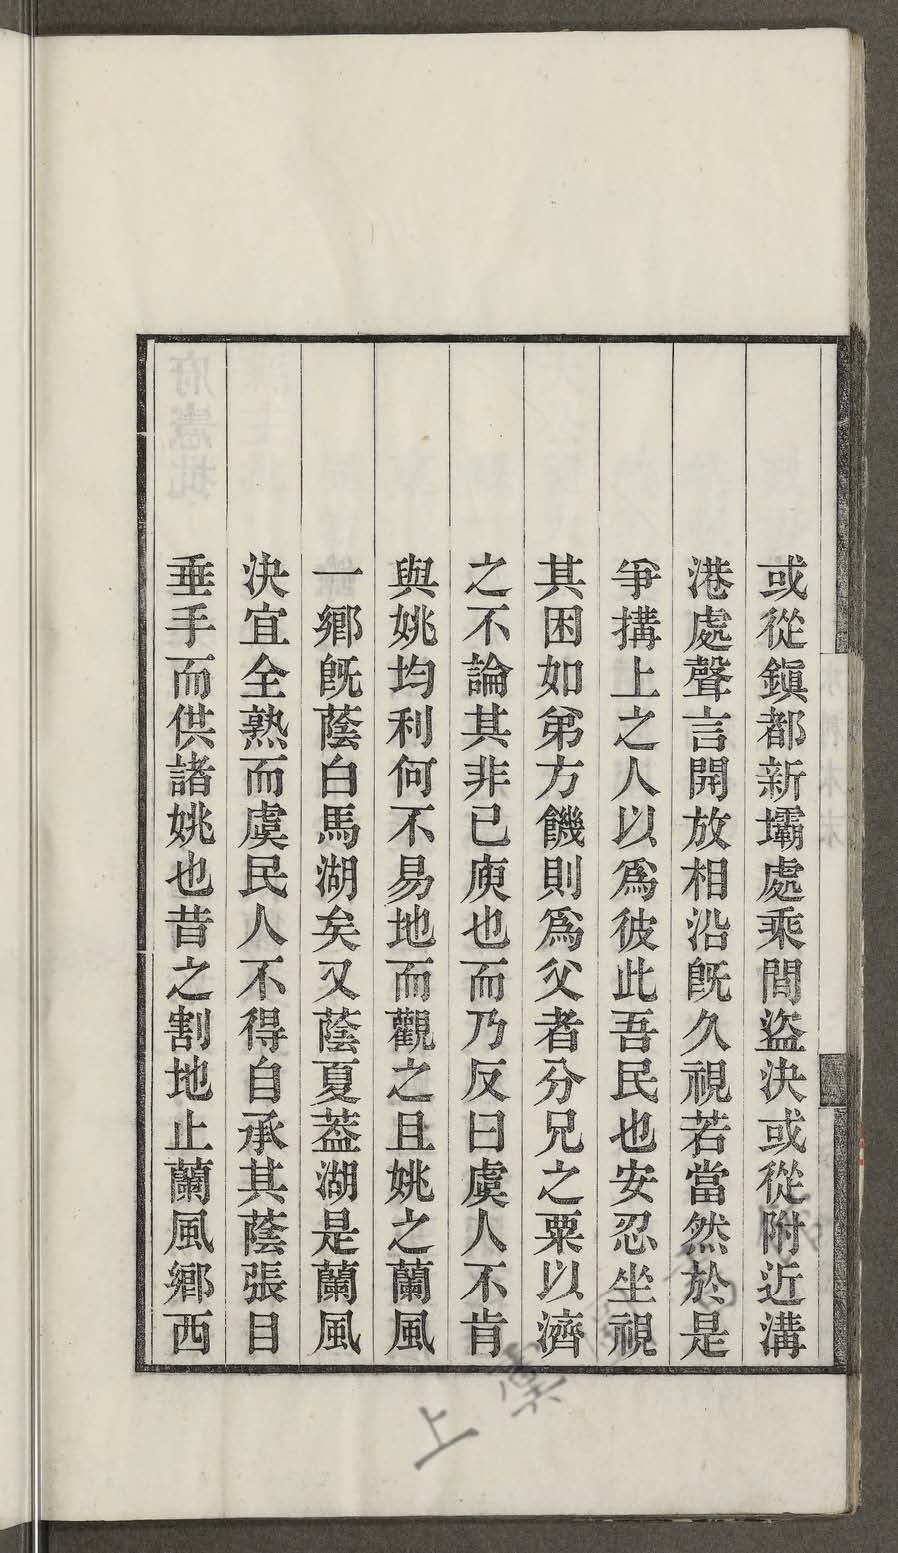 或從鎭都新壩處乘間盜決或從附近溝
港處聲言開放相沿旣久視若當然於是
爭搆上之人以爲彼此吾民也安忍坐視
其困如弟方饑則爲父者分兄之粟以濟
之不論其非已庾也而乃反曰虞人不肯
與姚均利何不易地而觀之且姚之蘭風
一鄉旣蔭白馬湖矣又蔭夏葢湖是蘭風
決宜全熟而虞民人不得自承其蔭張目
垂手而供諸姚也昔之割地止蘭風鄉西
上虞